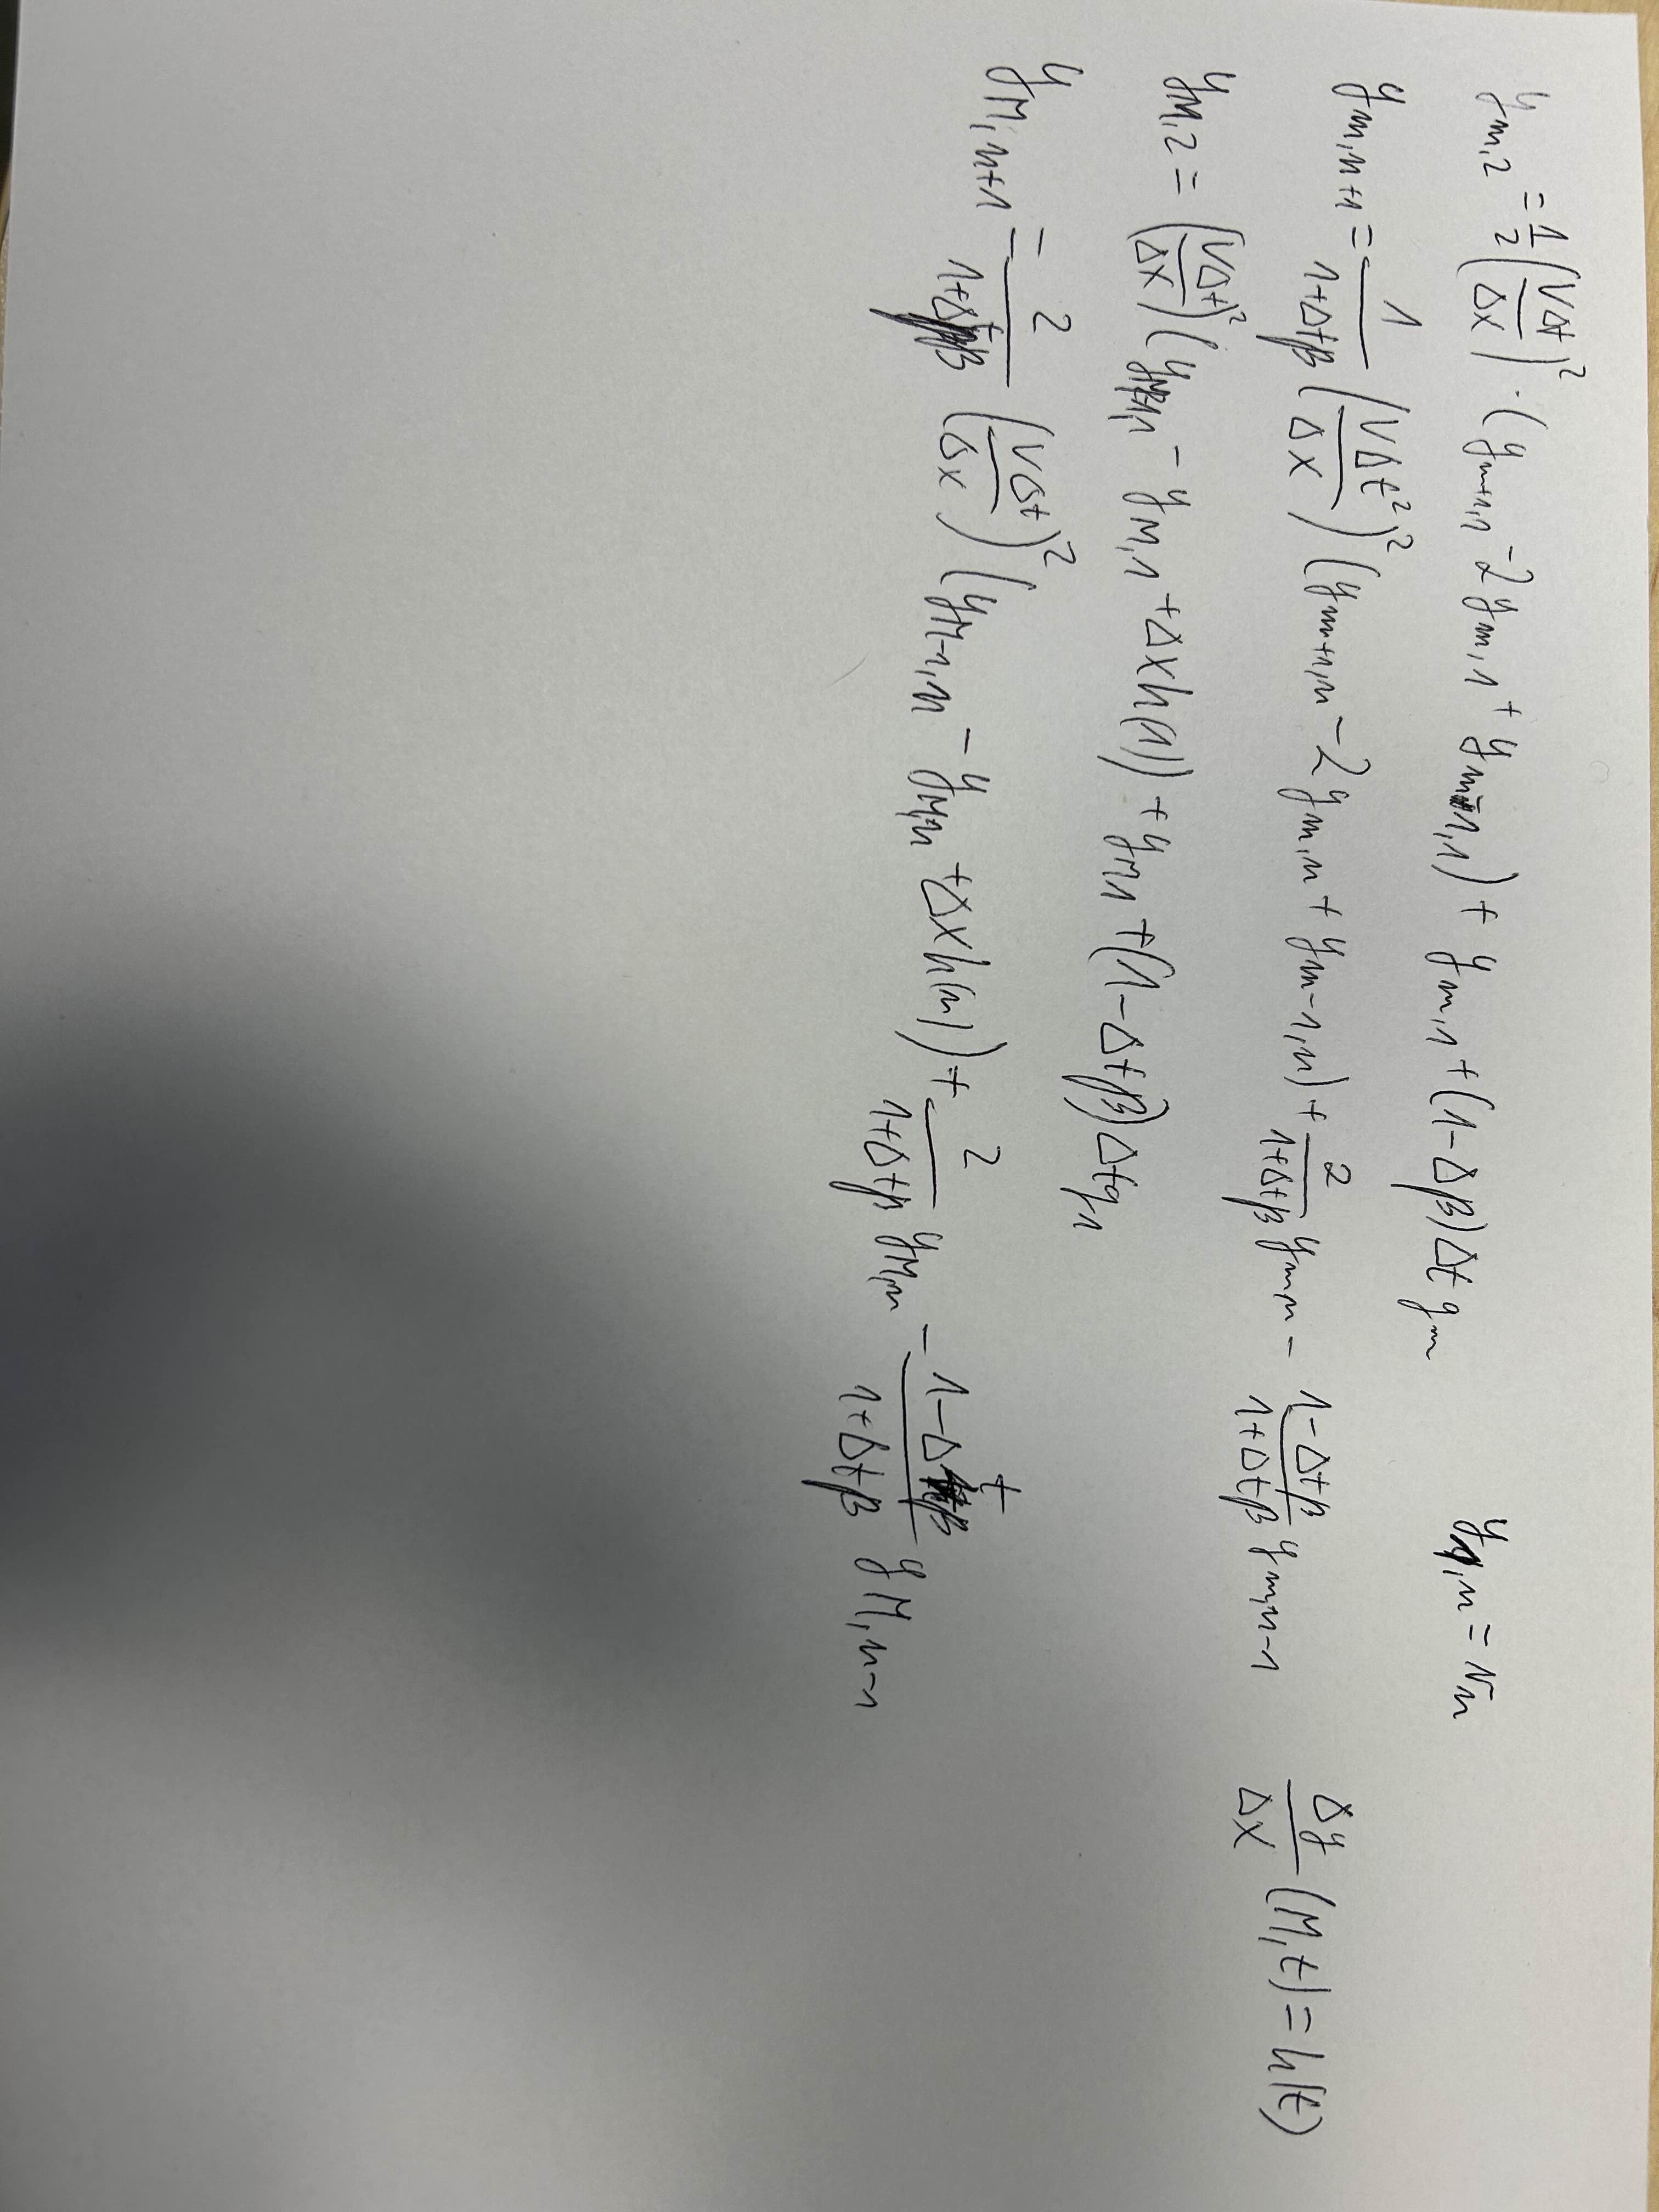 y_{m,2} = \frac{1}{2} \left(\frac{v\Delta t}{\Delta x}\right)^2 \cdot (y_{m+1,1} - 2y_{m,1} + y_{m-1,1}) + y_{m,1} + (1-\Delta\beta)\Delta t g_m    y_{1,n} = v_n
y_{m,n+1} = \frac{1}{1+\Delta t\beta} \left(\frac{v\Delta t^2}{\Delta x}\right)^2 (y_{m+1,n} - 2y_{m,n} + y_{m-1,n}) + \frac{2}{1+\Delta t\beta} y_{m,n} - \frac{1-\Delta t\beta}{1+\Delta t\beta} y_{m,n-1}    \frac{\Delta y}{\Delta x}(M,t) = h(t)
y_{M,2} = \left(\frac{v\Delta t}{\Delta x}\right)^2 ( - y_{M,1} + \Delta x h(1)) + y_{M1} + (1-\Delta t\beta)\Delta t g_1
y_{M,n+1} = \frac{2}{1+\Delta t\beta} \left(\frac{v\Delta t}{\Delta x}\right)^2 (y_{M-1,n} - y_{M,n} + \Delta x h(n)) + \frac{2}{1+\Delta t\beta} y_{M,n} - \frac{1-\Delta t\beta}{1+\Delta t\beta} y_{M,n-1}